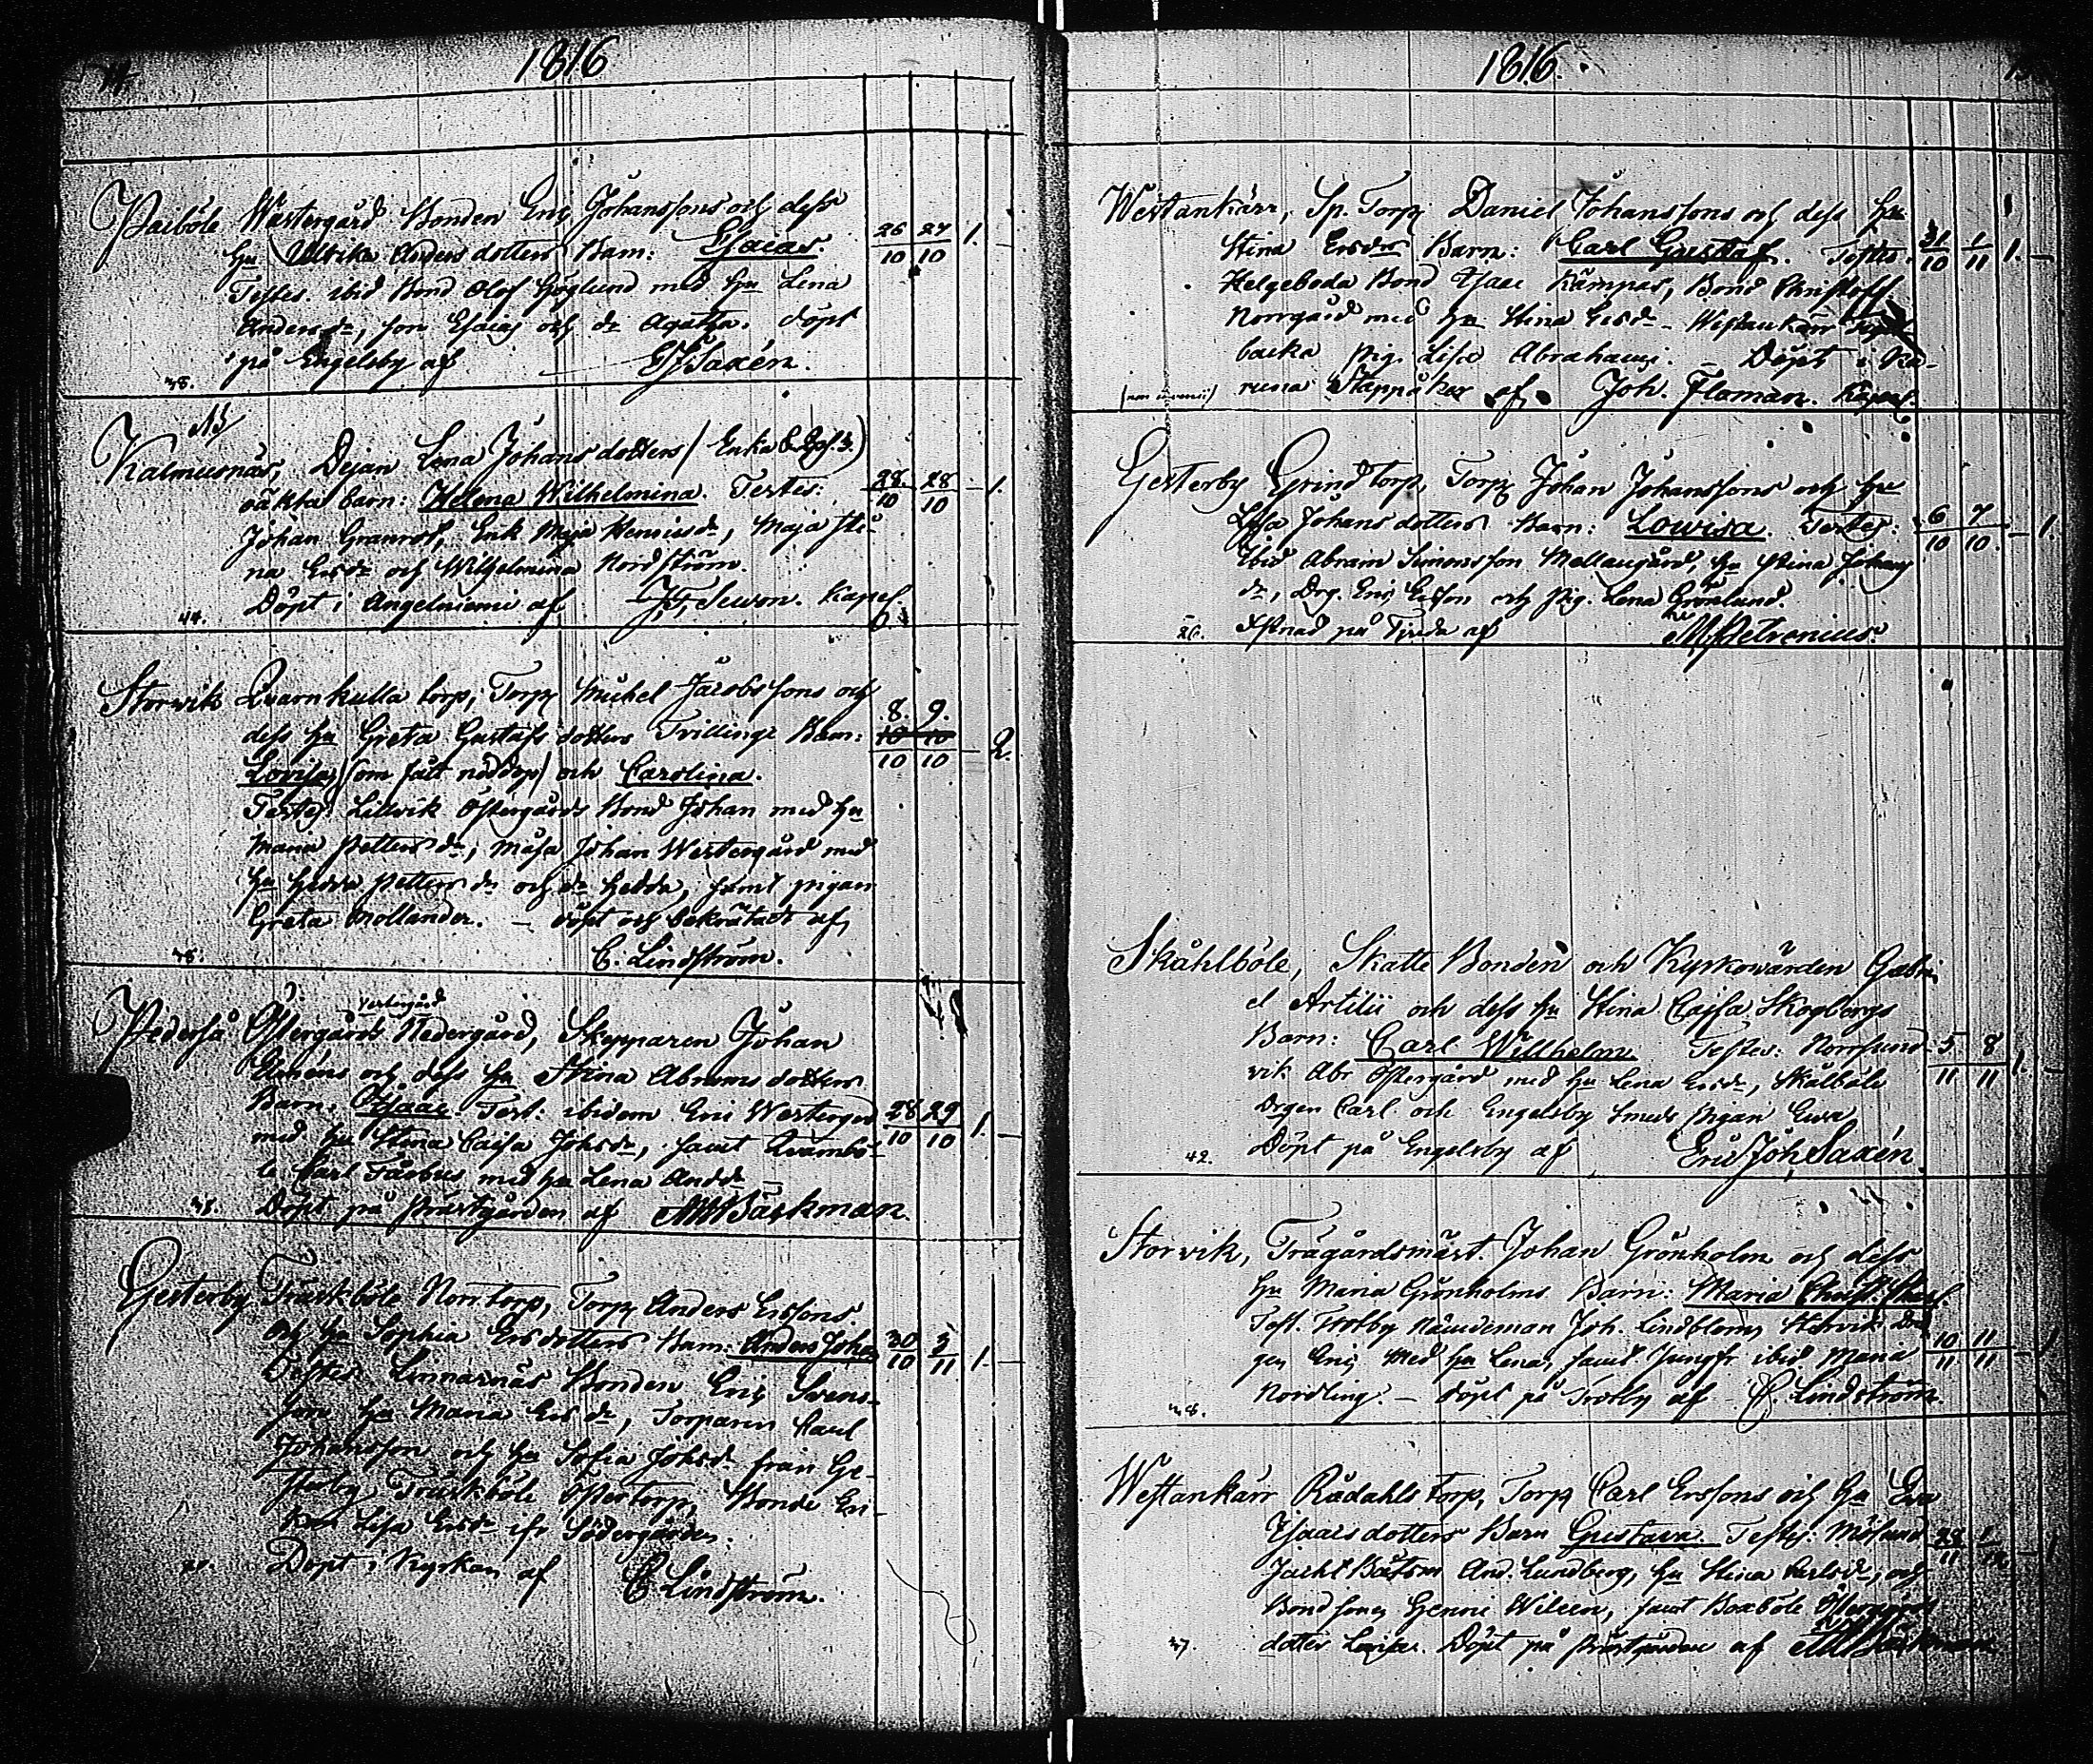 14
1816
Paiböle Wästergård Bonden Eric Johanssons och dess
hu Ulrika Andersdotters Barn: Esaias. 26/10 27/10 1. –
Testes. ibid Bond Olof Höglund med hu Lena
Andersdr, son Esaias och dr Agatha. döpt
på Engelsby af EJ Saxén.
38.
Kalmusnäs, Dejan Lena Johansdotters (Enka
oäkta barn: Helena Wilhelmina. Testes: 28/10 28/10 – 1.
Johan Granrot, Enk Maja Henricsdr, Maja Sti-
na Ersdr och Wilhelmina Nordström.
Döpt i Angelniemi af Kapel
44.
Storvik Qvarnkulla torp, Torp Michel Jacobssons och
dess hu Greta Gustafsdotters Trillings Barn: 8. 9.
Lovisa, (som fått nöddop) och Carolina. 10 10 – 2.
Testes: Lillvik Östergårds Bond Johan med hu
Maria Pettersdr, Måsa Johan Westergård med
hu Hedda Pettersdr och dr Hedda, samt pigan
Greta Mollander. – döpt och bekräftadt af
C. Lindström.
Westergård
Pedersjö Östergårds Nedergård, Skepparen Johan
och dess hu Stina Abramsdotters
Barn: Isaac. Test: ibidem Eric Westergård 28/10 29/10 1. –
med hu Stina Caisa Johsdr, samt Qvarnbö-
le Carl Farbus med hu Lena Andd
Döpt på Prästgården af Bäckman.
Gesterby Träskböle Norrtorp, Torp Anders Erssons
och hu Sophia Ersdotters Barn: Anders Johan 30/10 3/11 1. –
Testes Linnarnäs Bonden Eric Svens-
son hu Maria Ersdr, Torparen Carl
Johansson och hu Sofia Johsdr från Ge-
sterby Träskböle Östertorp, Bonde
Lisa Ersdr Södergården.
Döpt i Kyrkan af C Lindström.
1816.
Westankärr, Sp. Torp Daniel Johanssons och dess hu
Stina Ersdrs Barn: Carl Gustaf. Testes. 31/10 1/11 1. –
Helgeboda Bond Isaac Kämpas, Bond Christoff
Norrgård med hu Stina Ersdr – Westankärr
backa pig. Lisa Abrahams. – Döpt i Ka-
runa Stappåker af Joh. Floman. Kapel.
Gesterby Grindtorp, Torp Johan Johanssons och hu
Lisa Johansdotters Barn: Lowisa. Testes: 6/10 7/10. – 1.
Ibid Abram Simonsson Mellangård, hu Stina Johans
dr, Drg. Eric Ersson och pig. Lena Grönlund.
på Tjuda af Petronius.
26.
Skåhlböle, Skatte Bonden och Kyrkowärden Gabri-
el Artilii och dess hu Stina Cajsa Skogbergs
Barn: Carl Willhelm Testes: Norrsund- 5/11 8/11 1. –
vik Abr Östergård med hu Lena Ersdr, Skålböle
Drgen Carl och Engelsby smeds pigan Ewa
Döpt på Engelsby af Eric Joh Saxén.
42.
Storvik, Trägårdsmäst. Johan Grönholm och dess
hu Maria Grönholms Barn: Maria
Test. Trotby Nämdeman Joh. Lindblom, Storvik Drä
gen Eric med hu Lena, samt Jungfr ibid. Maria 10/11 11/11 – 1
Nordling. – döpt på Trotby af C. Lindström.
38.
Westankärr Rådahls torp, Torp Carl Erssons och hu Eva
Isaacsdotters Barn Gustava. Testes: Mösund 28/11 1/12 – 1
Jacht Båtsm And. Lundberg, hu Stina Carlsdr, och
Bondsonen Henric Wileen, samt Boxböle Östergård
dotter Lovisa. Döpt på Prästgården af Bäckman
37.